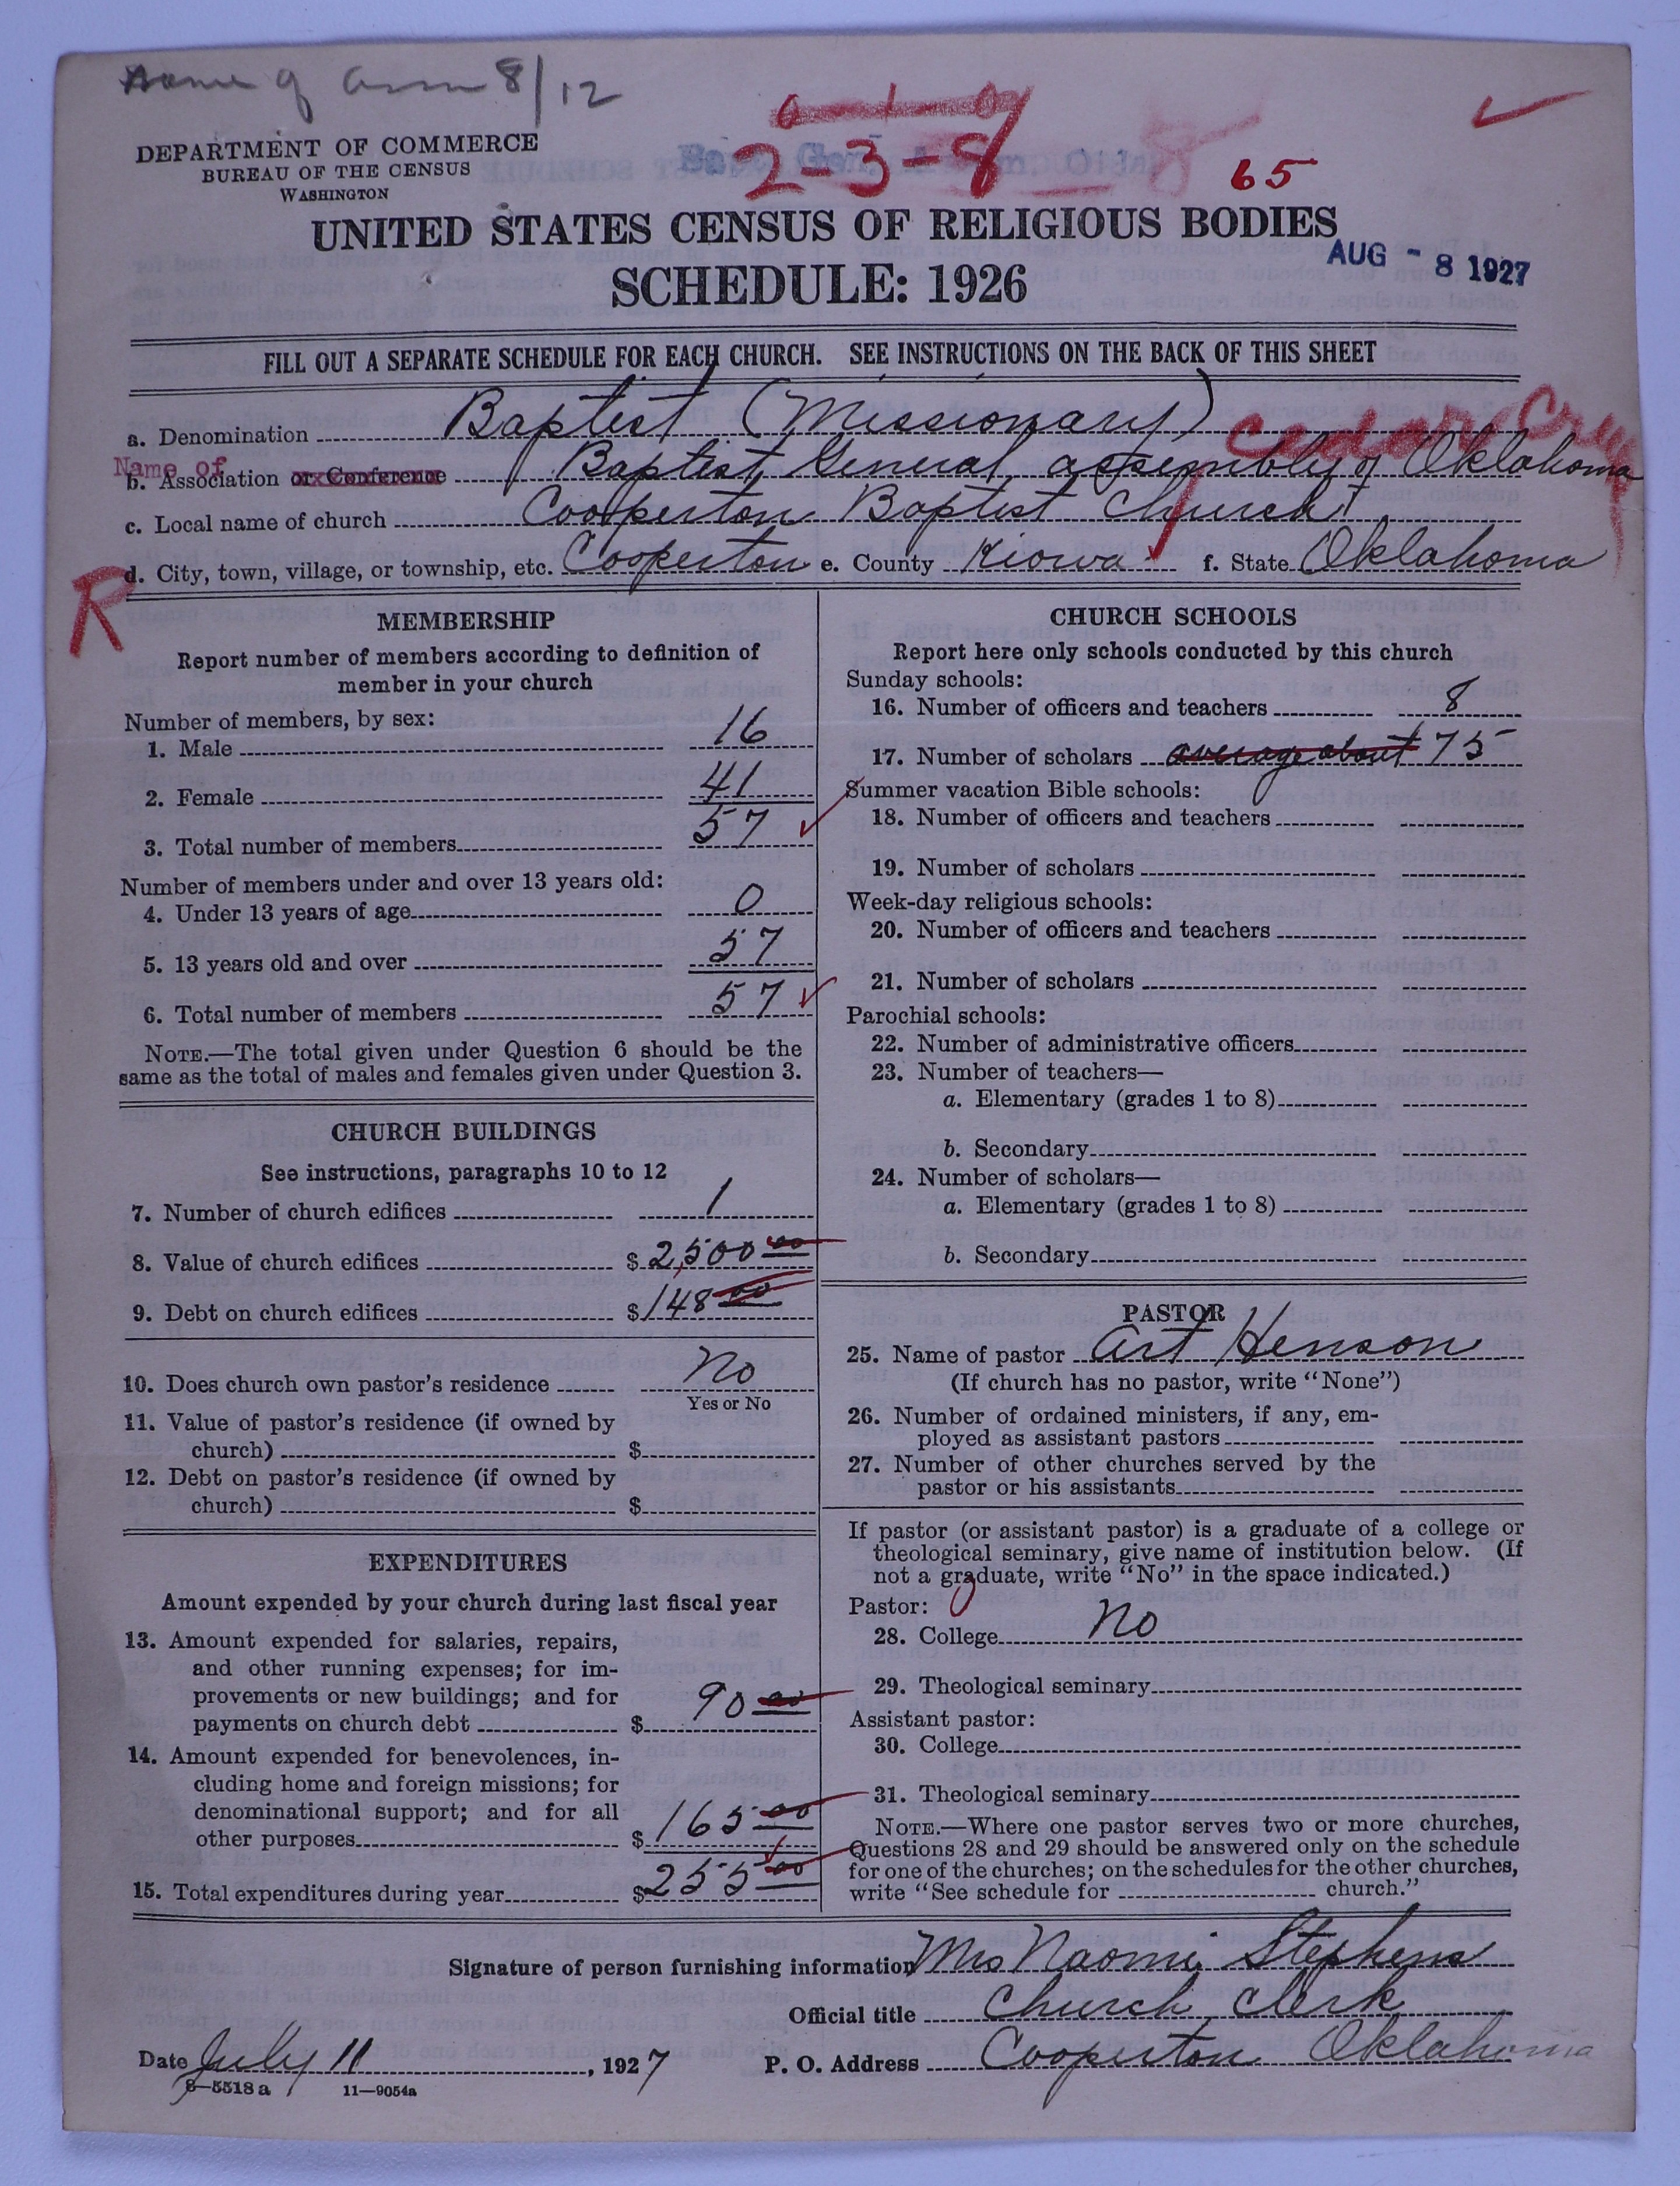 Name of assn 8/12
2-3-8
65
DEPARTMENT OF COMMERCE
BUREAU OF THE CENSUS
WASHINGTON
UNITED STATES CENSUS OF RELIGIOUS BODIES
AUG - 8 1927
SCHEDULE: 1926
FILL OUT A SEPARATE SCHEDULE FOR EACH CHURCH. SEE INSTRUCTIONS ON THE BACK OF THIS SHEET
a. Denomination Baptist (Missionary)
Name of
b. Association or Conference Baptist General assembly of Oklahoma
c. Local name of church Cooperton Baptist Church
d. City, town, village, or township, etc. Cooperton e. County Kiowa f. State Oklahoma
R
MEMBERSHIP
Report number of members according to definition of
member in your church
Number of members, by sex:
1. Male 16
2. Female 41
3. Total number of members 57
Number of members under and over 13 years old:
4. Under 13 years of age 0
5. 13 years old and over 57
6. Total number of members 57
NOTE.—The total given under Question 6 should be the
same as the total of males and females given under Question 3.
CHURCH BUILDINGS
See instructions, paragraphs 10 to 12
7. Number of church edifices 1
8. Value of church edifices $2,500 00
9. Debt on church edifices $148 00
10. Does church own pastor's residence No
Yes or No
11. Value of pastor's residence (if owned by
church) $
12. Debt on pastor's residence (if owned by
church) $
EXPENDITURES
Amount expended by your church during last fiscal year
13. Amount expended for salaries, repairs,
and other running expenses; for im-
provements or new buildings; and for
payments on church debt $ 90 00
14. Amount expended for benevolences, in-
cluding home and foreign missions; for
denominational support; and for all
other purposes $165 00
15. Total expenditures during year $255 00
CHURCH SCHOOLS
Report here only schools conducted by this church
Sunday schools:
16. Number of officers and teachers 8
17. Number of scholars average about 75
Summer vacation Bible schools:
18. Number of officers and teachers
19. Number of scholars
Week-day religious schools:
20. Number of officers and teachers
21. Number of scholars
Parochial schools:
22. Number of administrative officers
23. Number of teachers—
a. Elementary (grades 1 to 8)
b. Secondary
24. Number of scholars—
a. Elementary (grades 1 to 8)
b. Secondary
PASTOR
25. Name of pastor Art Henson
(If church has no pastor, write "None")
26. Number of ordained ministers, if any, em-
ployed as assistant pastors
27. Number of other churches served by the
pastor or his assistants
If pastor (or assistant pastor) is a graduate of a college or
theological seminary, give name of institution below. (If
not a graduate, write "No" in the space indicated.)
Pastor:
28. College No
29. Theological seminary
Assistant pastor:
30. College
31. Theological seminary
NOTE.—Where one pastor serves two or more churches,
Questions 28 and 29 should be answered only on the schedule
for one of the churches; on the schedules for the other churches,
write "See schedule for church."
Signature of person furnishing information Mrs Naomi Stephens
Official title Church Clerk
Date July 11, 1927 P. O. Address Cooperton Oklahoma
8—5518 a 11—9054a